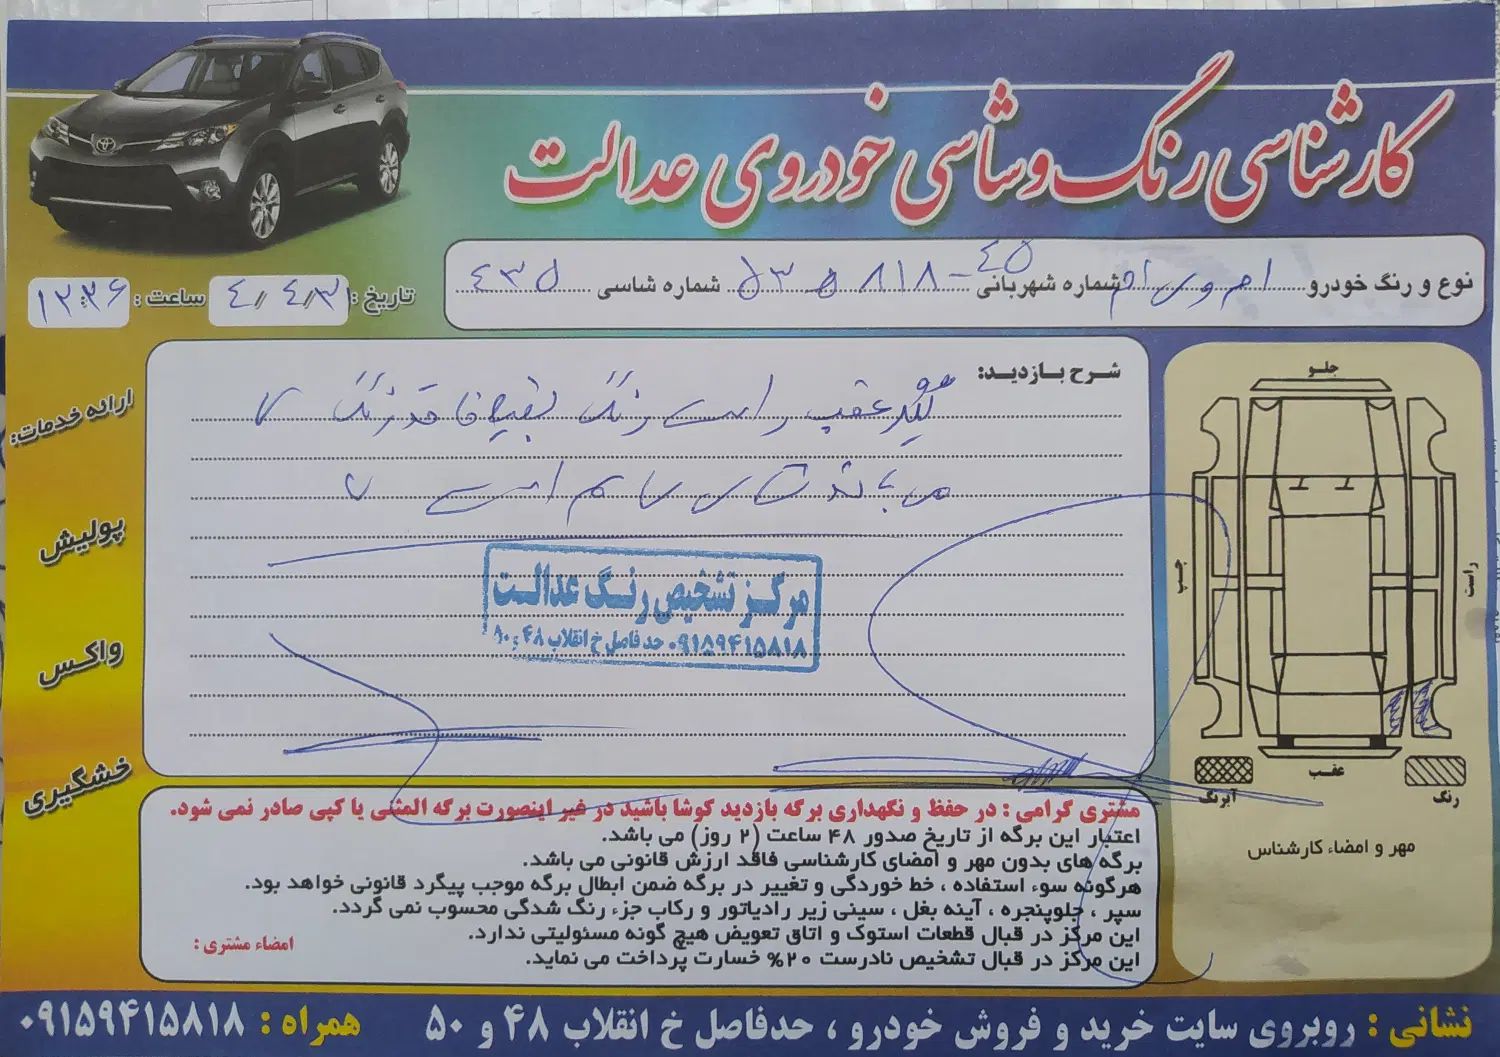 کارشناسی رنگ و شاسی خودروی عدالت
نوع و رنگ خودرو ام وی ام شماره شهربانی ۸۱۸ - ۴۵ شماره شاسی ۴۳۵
تاریخ : ۴/۴/۳۱ ساعت : ۱۲:۲۶
شرح بازدید:
گلگیر عقب راست رنگ بقیه فاقد رنگ
می باشد شاسی سالم است
مرکز تشخیص رنگ عدالت
۰۹۱۵۹۴۱۵۸۱۸ حدفاصل خ انقلاب ۴۸ و ۵۰
ارائه خدمات:
پولیش
واکس
خشگیری
جلو
چپ
راست
عقب
آبرنگ
رنگ
مهر و امضاء کارشناس
مشتری گرامی : در حفظ و نگهداری برگه بازدید کوشا باشید در غیر اینصورت برگه المثنی یا کپی صادر نمی شود.
اعتبار این برگه از تاریخ صدور ۴۸ ساعت (۲ روز) می باشد.
برگه های بدون مهر و امضای کارشناسی فاقد ارزش قانونی می باشد.
هرگونه سوء استفاده ، خط خوردگی و تغییر در برگه ضمن ابطال برگه موجب پیگرد قانونی خواهد بود.
سپر ، جلوپنجره ، آینه بغل ، سینی زیر رادیاتور و رکاب جزء رنگ شدگی محسوب نمی گردد.
این مرکز در قبال قطعات استوک و اتاق تعویض هیچ گونه مسئولیتی ندارد.
این مرکز در قبال تشخیص نادرست ۲۰% خسارت پرداخت می نماید.
امضاء مشتری :
نشانی : روبروی سایت خرید و فروش خودرو ، حدفاصل خ انقلاب ۴۸ و ۵۰ همراه : ۰۹۱۵۹۴۱۵۸۱۸